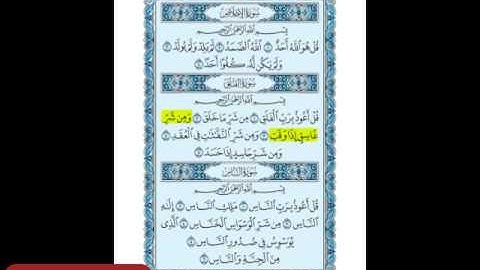 سُورَةُ الإِخْلَاصِ
بِسْمِ اللَّهِ الرَّحْمَٰنِ الرَّحِيمِ
قُلْ هُوَ اللَّهُ أَحَدٌ ١ اللَّهُ الصَّمَدُ ٢ لَمْ يَلِدْ وَلَمْ يُولَدْ
٣ وَلَمْ يَكُن لَّهُ كُفُوًا أَحَدٌ ٤
سُورَةُ الْفَلَقِ
بِسْمِ اللَّهِ الرَّحْمَٰنِ الرَّحِيمِ
قُلْ أَعُوذُ بِرَبِّ الْفَلَقِ ١ مِن شَرِّ مَا خَلَقَ ٢ وَمِن شَرِّ
غَاسِقٍ إِذَا وَقَبَ ٣ وَمِن شَرِّ النَّفَّاثَاتِ فِي الْعُقَدِ ٤
وَمِن شَرِّ حَاسِدٍ إِذَا حَسَدَ ٥
سُورَةُ النَّاسِ
بِسْمِ اللَّهِ الرَّحْمَٰنِ الرَّحِيمِ
قُلْ أَعُوذُ بِرَبِّ النَّاسِ ١ مَلِكِ النَّاسِ ٢ إِلَٰهِ
النَّاسِ ٣ مِن شَرِّ الْوَسْوَاسِ الْخَنَّاسِ ٤ الَّذِي
يُوَسْوِسُ فِي صُدُورِ النَّاسِ ٥
مِنَ الْجِنَّةِ وَالنَّاسِ ٦